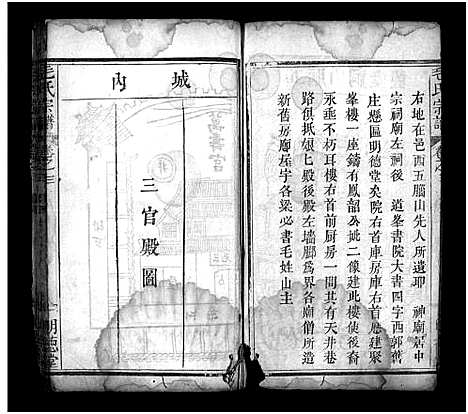 毛氏宗譜
右地在邑西五腦山先人所遺耶　神廟居中
宗祠廟左祠後　道峯書院大書四字西郭舊
庄懸區明德堂矣院右首庫房庫右首厯建聚
峯樓一座鑄有鳳韶公妣二像建此樓使後裔
永垂不朽耳樓右首前厨房一間其有天井巷
路俱抵娘㔾殿後殿左墻脚為界各廟僧所造
新舊房廟屋宇各梁必書毛姓山主
城內
三官殿圖
萬壽宮
毛氏宗譜
明德堂